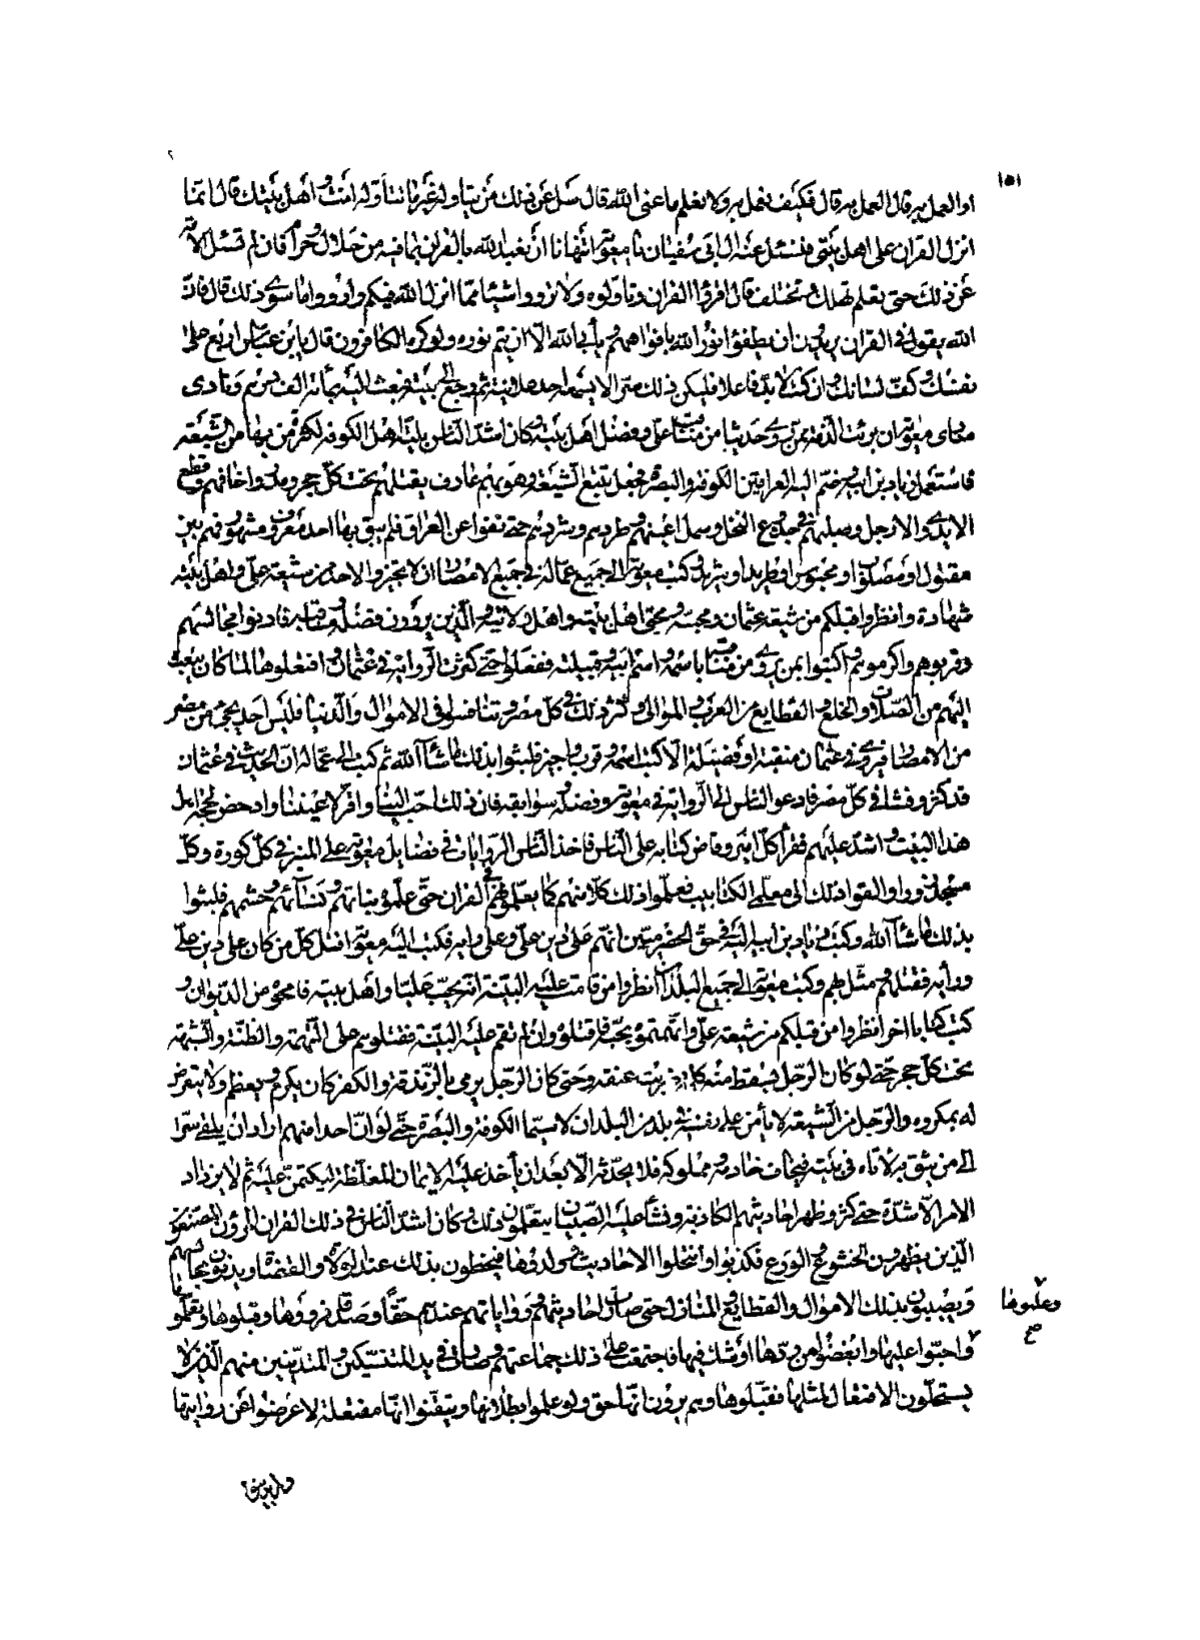 ١٥١
او العمل به قال العمل به قال فكيف نعمل به ولا نعلم ما عنى الله قال سل عن ذلك من يتأوله غير ما تتأوله انت و اهل بيتك قال انما
انزل القران على اهل بيتى فنسئل عنه ال ابى سفيان يا معوية اتنهانا ان نعبد الله بالقران بما فيه من حلال و حرام فان لم تسئل الامة
عن ذلك حتى تعلم تهلك و تختلف قال اقرؤا القران و تأولوه ولا ترووا شيئا مما انزل الله فيكم وارووا ما سوى ذلك قال فان
الله يقول فى القران يريدون ان يطفؤا نور الله بافواههم و يأبى الله الا ان يتم نوره ولو كره الكافرون قال يا بن عباس اربع على
نفسك و كف لسانك و ان كنت لا بد فاعلا فليكن ذلك سرا لا يسمعه احد علانية ثم رجع الى بيته فبعث اليه بمائة الف درهم و نادى
منادى معوية ان برئت الذمة ممن روى حديثا من مناقب على و فضل اهل بيته و كان اشد الناس بلية اهل الكوفة لكثرة من بها من الشيعة
فاستعمل زياد بن ابيه و ضم اليه العراقين الكوفة والبصرة فجعل يتتبع الشيعة و هو بهم عارف يقتلهم تحت كل حجر و مدر واخافهم و قطع
الايدى والارجل و صلبهم فى جذوع النخل و سمل اعينهم و طردهم و شردهم حتى نفوا عن العراق فلم يبق بها احد معروف مشهور فهم بين
مقتول او مصلوب او محبوس او طريد او شريد و كتب معوية الى جميع عماله فى جميع الامصار ان لا تجيزوا لاحد من شيعة على و اهل بيته
شهادة و انظروا قبلكم من شيعة عثمان و محبيه و محبى اهل بيته و اهل ولايته و الذين يروون فضله و مناقبه فادنوا مجالسهم
و قربوهم و اكرموهم و اكتبوا بمن يروى من مناقبه باسمه و اسم ابيه و قبيلته ففعلوا حتى كثرت الرواية فى عثمان و افتعلوها لما كان يبعث
اليهم من الصلات و الخلع و القطايع من العرب و الموالى و كثر ذلك فى كل مصر و تنافسوا فى الاموال و الدنيا فليس احد يجئ من مصر
من الامصار فيروى فى عثمان منقبة او فضيلة الا كتب اسمه و قرب و اجيز فلبثوا بذلك ما شاء الله ثم كتب الى عماله ان الحديث فى عثمان
قد كثر و فشا فى كل مصر فادعوا الناس الى الرواية فى معوية و فضله و سوابقه فان ذلك احب الينا و اقر لاعيننا و ادحض لحجة اهل
هذا البيت و اشد عليهم فقرأ كل امير و قاض كتابه على الناس فاخذ الناس الروايات فى فضايل معوية على المنبر فى كل كورة و كل
مسجد زورا و القوا ذلك الى معلمى الكتاتيب فعلموا ذلك غلمانهم كما يعلمونهم القران حتى علموه بناتهم و نسائهم و حشمهم فلبثوا
بذلك ما شاء الله و كتب زياد بن ابيه اليه فى حق الحضرميين انهم على دين على و على رايه فكتب اليه معوية اقتل كل من كان على دين على
و رأيه فقتلهم و مثل بهم و كتب معوية الى جميع البلدان انظروا من قامت عليه البينة انه يحب عليا و اهل بيته فامحوه من الديوان و
كتب كتابا اخر انظروا من قبلكم من شيعة على و اتهمتموه بحبه فاقتلوه و ان لم تقم عليه البينة فقتلوهم على التهمة و الظنة و الشبهة
تحت كل حجر حتى لو كان الرجل تسقط منه كلمة ضربت عنقه و حتى كان الرجل يرمى بالزندقة و الكفر كان يكرم و يعظم و لا يتعرض
له بمكروه و الرجل من الشيعة لا يأمن على نفسه فى بلد من البلدان لا سيما الكوفة و البصرة حتى لو ان احدا منهم اراد ان يلقى سرا
الى من يثق به لاتاه فى بيته فيخاف خادمه و مملوكه فلا يحدثه الا بعد ان يأخذ عليه الايمان المغلظة ليكتمن عليه ثم لا يزداد
الامر الا شدة حتى كثر و ظهر احاديثهم الكاذبة و نشأ عليه الصبيان يتعلمون ذلك و كان اشد الناس فى ذلك القراء المراؤن المتصنعون
الذين يظهرون الخشوع و الورع فكذبوا و انتحلوا الاحاديث و ولدوها فيحظون بذلك عند الولاة و القضاة و يدنون مجالسهم
و يصيبون بذلك الاموال و القطايع و المنازل حتى صارت احاديثهم و رواياتهم عندهم حقا و صدقا فرووها و قبلوها و تعلموها
و علموها
صح
و احبوا عليها و ابغضوا من ردها او شك فيها فاجتمعت على ذلك جماعتهم و صارت فى يد المتنسكين و المتدينين منهم الذين لا
يستحلون الافتعال لمثلها فقبلوها و هم يرون انها حق و لو علموا بطلانها و تيقنوا انها مفتعلة لاعرضوا عن روايتها